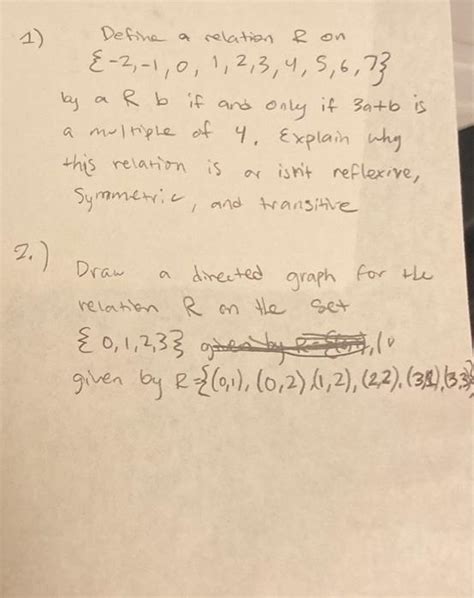 1) Define a relation R on
{-2,-1,0,1,2,3,4,5,6,7}
by a R b if and only if 3a+b is
a multiple of 4. Explain why
this relation is or isn't reflexive,
symmetric, and transitive
2.) Draw a directed graph for the
relation R on the set
{0,1,2,3}
given by R={(0,1), (0,2), (1,2), (2,2), (3,2), (3,3)}